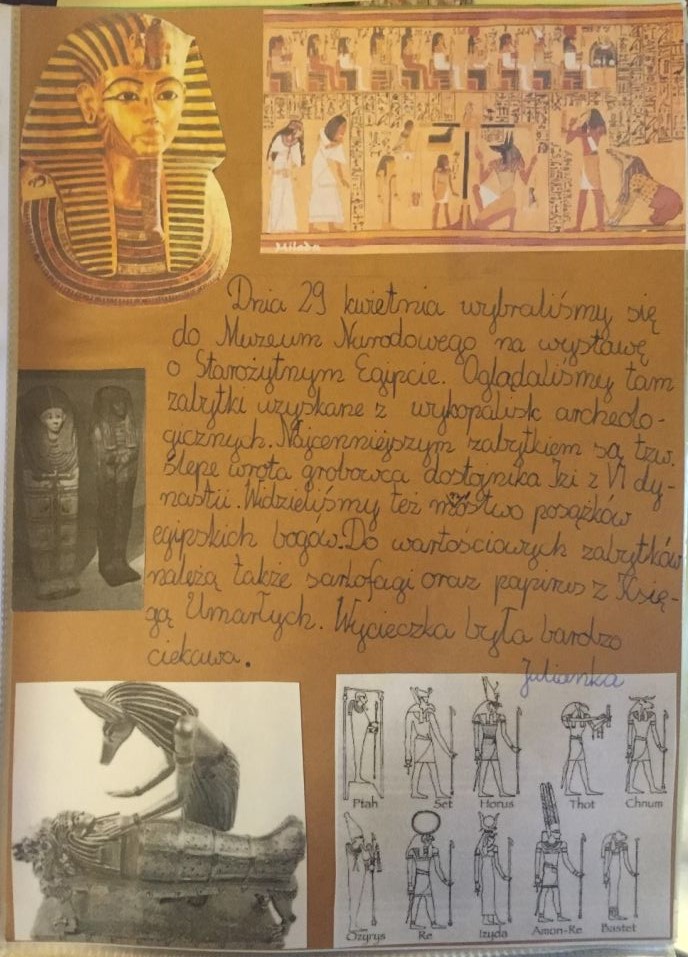 Dnia 29 kwietnia wybraliśmy się
do Muzeum Narodowego na wystawę
o Starożytnym Egipcie. Oglądaliśmy tam
zabytki uzyskane z wykopalisk archeolo-
gicznych. Najcenniejszym zabytkiem są tzw.
ślepe wrota grobowca dostojnika Izi z VI dy-
nastii. Widzieliśmy też mnóstwo posążków
egipskich bogów. Do wartościowych zabytków
należą także sarkofagi oraz papirus z Księ-
gą Umarłych. Wycieczka była bardzo
ciekawa.
Julianka
Ptah Set Horus Thot Chnum
Ozyrys Re Izyda Amon-Re Bastet